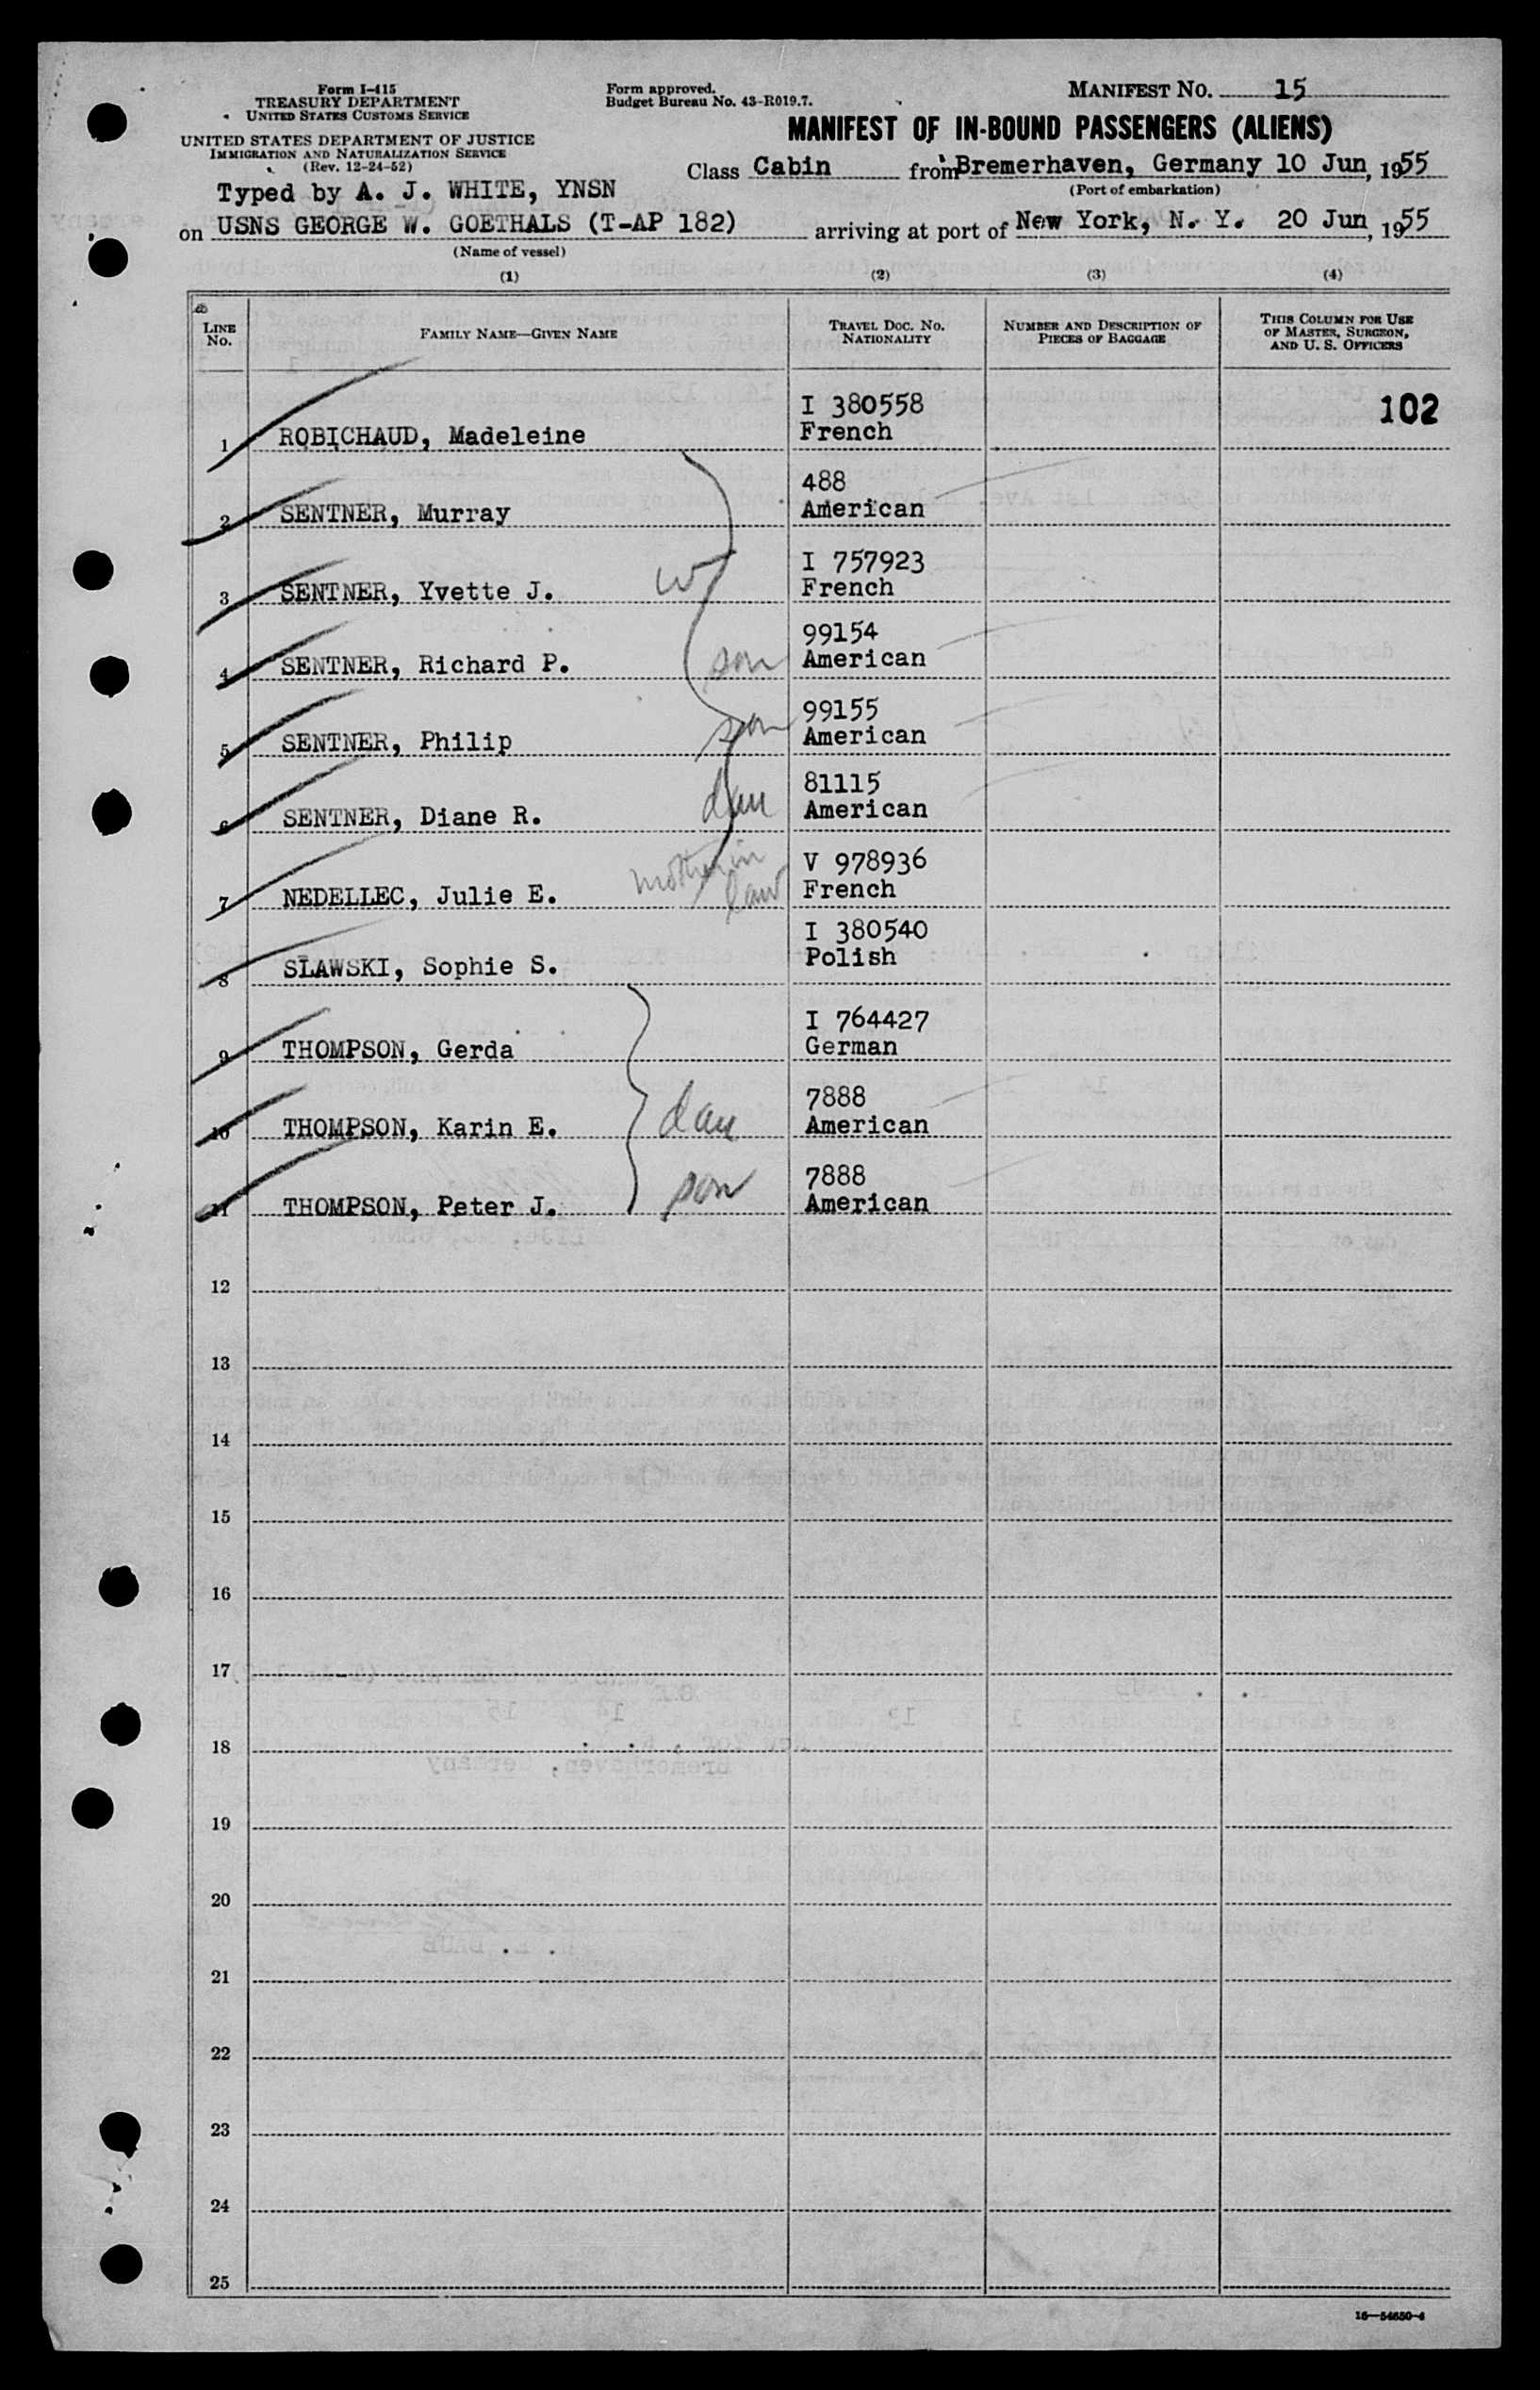 Form I-415
TREASURY DEPARTMENT
UNITED STATES CUSTOMS SERVICE
UNITED STATES DEPARTMENT OF JUSTICE
IMMIGRATION AND NATURALIZATION SERVICE
(Rev. 12-24-52)
Form approved.
Budget Bureau No. 43-R019.7.
MANIFEST NO. 15
MANIFEST OF IN-BOUND PASSENGERS (ALIENS)
Class Cabin from Bremerhaven, Germany 10 Jun, 1955
(Port of embarkation)
Typed by A. J. WHITE, YNSN
on USNS GEORGE W. GOETHALS (T-AP 182) arriving at port of New York, N. Y. 20 Jun, 1955
(Name of vessel)
(1) (2) (3) (4)
LINE NO. FAMILY NAME—GIVEN NAME TRAVEL DOC. NO. NATIONALITY NUMBER AND DESCRIPTION OF PIECES OF BAGGAGE THIS COLUMN FOR USE OF MASTER, SURGEON, AND U. S. OFFICERS
I 380558 102
1 ROBICHAUD, Madeleine French
488
2 SENTNER, Murray American
I 757923
3 SENTNER, Yvette J. w French
99154
4 SENTNER, Richard P. son American
99155
5 SENTNER, Philip son American
81115
6 SENTNER, Diane R. dau American
V 978936
7 NEDELLEC, Julie E. mother in law French
I 380540
8 SLAWSKI, Sophie S. Polish
I 764427
9 THOMPSON, Gerda German
7888
10 THOMPSON, Karin E. dau American
7888
11 THOMPSON, Peter J. son American
12
13
14
15
16
17
18
19
20
21
22
23
24
25
16—54650-4